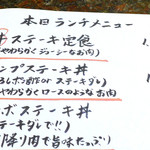 本日ランチメニュー
ステーキ定食
やわらかくジューシーなお肉)
プステーキ丼
ステーキダレ)
やわらかくロースのようなお肉
ボステーキ丼
ーキダレで!!)
降り肉で旨味たっぷり